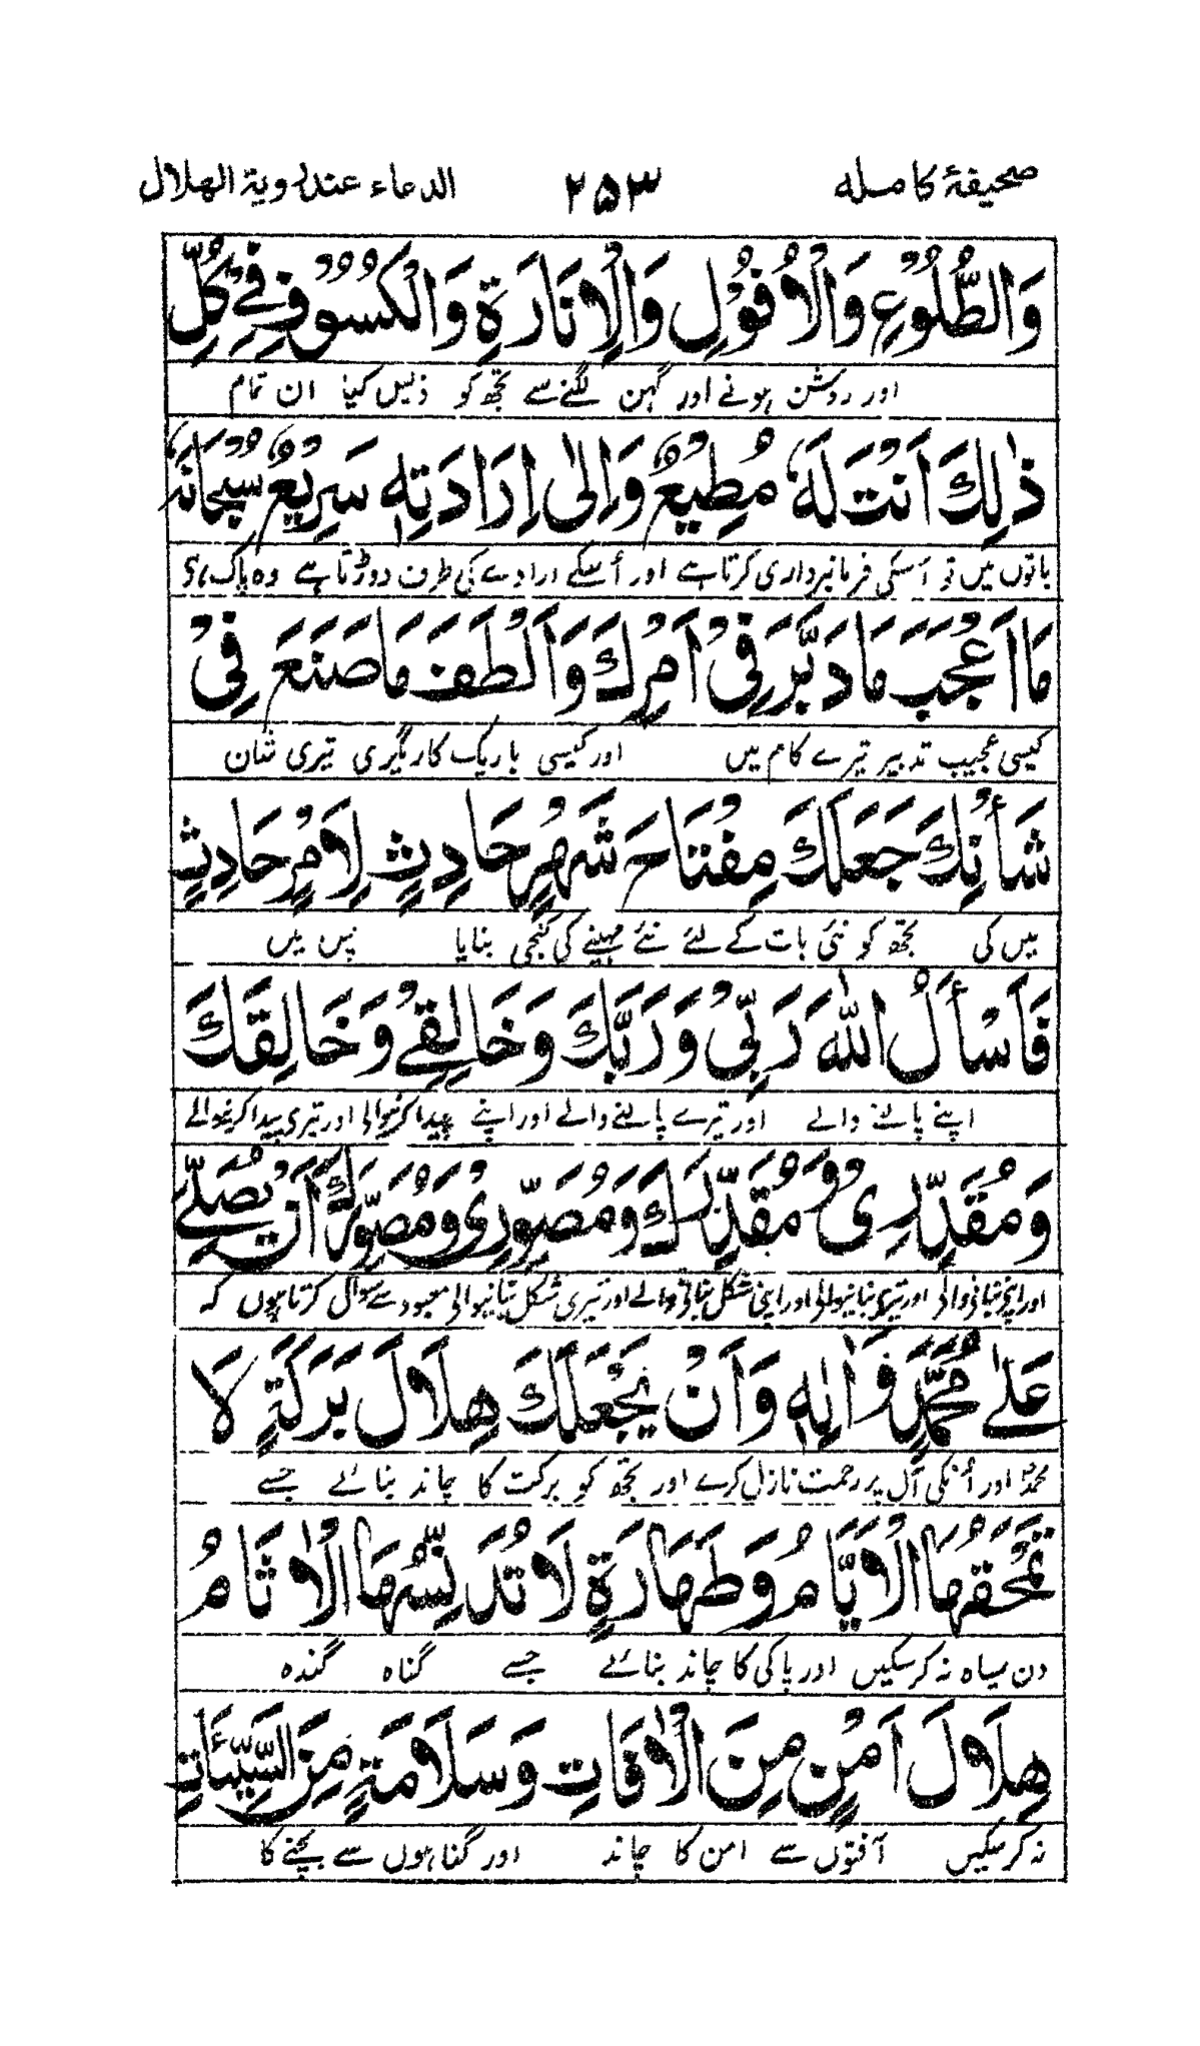 صحیفۂ کاملہ ۲۵۳ الدعاء عند رویة الهلال
وَالطُّلُوْعِ وَالْاُفُوْلِ وَالْاِنَارَةِ وَالْكُسُوْفِ فِيْ كُلِّ
اور روشن ہونے اور گہن لگنے سے تجھ کو ذلیل کیا ان تمام
ذٰلِكَ اَنْتَ لَهٗ مُطِيْعٌ وَاِلٰى اِرَادَتِهٖ سَرِيْعٌ سُبْحَانَهٗ
باتوں میں تو اسکی فرمانبرداری کرتا ہے اور اُسکے ارادے کی طرف دوڑتا ہے وہ پاک ہے
مَا اَعْجَبَ مَا دَبَّرَ فِىْ اَمْرِكَ وَاَلْطَفَ مَا صَنَعَ فِىْ
کیسی عجیب تدبیر تیرے کام میں اور کیسی باریک کاریگری تیری شان
شَأْنِكَ جَعَلَكَ مِفْتَاحَ شَهْرٍ حَادِثٍ لِاَمْرٍ حَادِثٍ
میں کی تجھ کو نئی بات کے لئے نئے مہینے کی کنجی بنایا پس میں
فَاَسْأَلُ اللّٰهَ رَبِّىْ وَرَبَّكَ وَخَالِقِىْ وَخَالِقَكَ
اپنے پالنے والے اور تیرے پالنے والے اور اپنے پیدا کرنیوالی اور تیری پیدا کرنیوالے
وَمُقَدِّرِىْ وَمُقَدِّرَكَ وَمُصَوِّرِىْ وَمُصَوِّرَكَ اَنْ يُصَلِّىَ
اور اپنی بنانیوالی اور تیری بنانیوالی اور اپنی شکل بنانیوالے اور تیری شکل بنانیوالی معبود سے سوال کرتا ہوں کہ
عَلٰى مُحَمَّدٍ وَاٰلِهٖ وَاَنْ يَجْعَلَكَ هِلَالَ بَرَكَةٍ لَا
محمدؐ اور اُنکی آل پر رحمت نازل کرے اور تجھ کو برکت کا چاند بنائے جسے
تَمْحَقُهَا الْاَيَّامُ وَطَهَارَةٍ لَا تُدَنِّسُهَا الْاٰثَامُ
دن سیاہ نہ کرسکیں اور پاکی کا چاند بنائے جسے گناہ گندہ
هِلَالَ اَمْنٍ مِنَ الْاٰفَاتِ وَسَلَامَةٍ مِنَ السَّيِّئَاتِ
نہ کرسکیں آفتوں سے امن کا چاند اور گناہوں سے بچنے کا